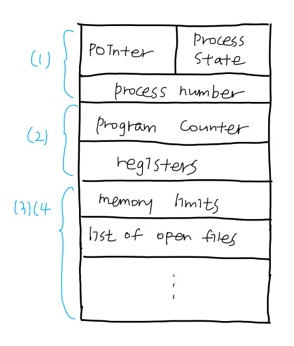 (1)
Pointer
Process
State
process number
(2)
program Counter
registers
(3)(4
memory limits
list of open files
⋮